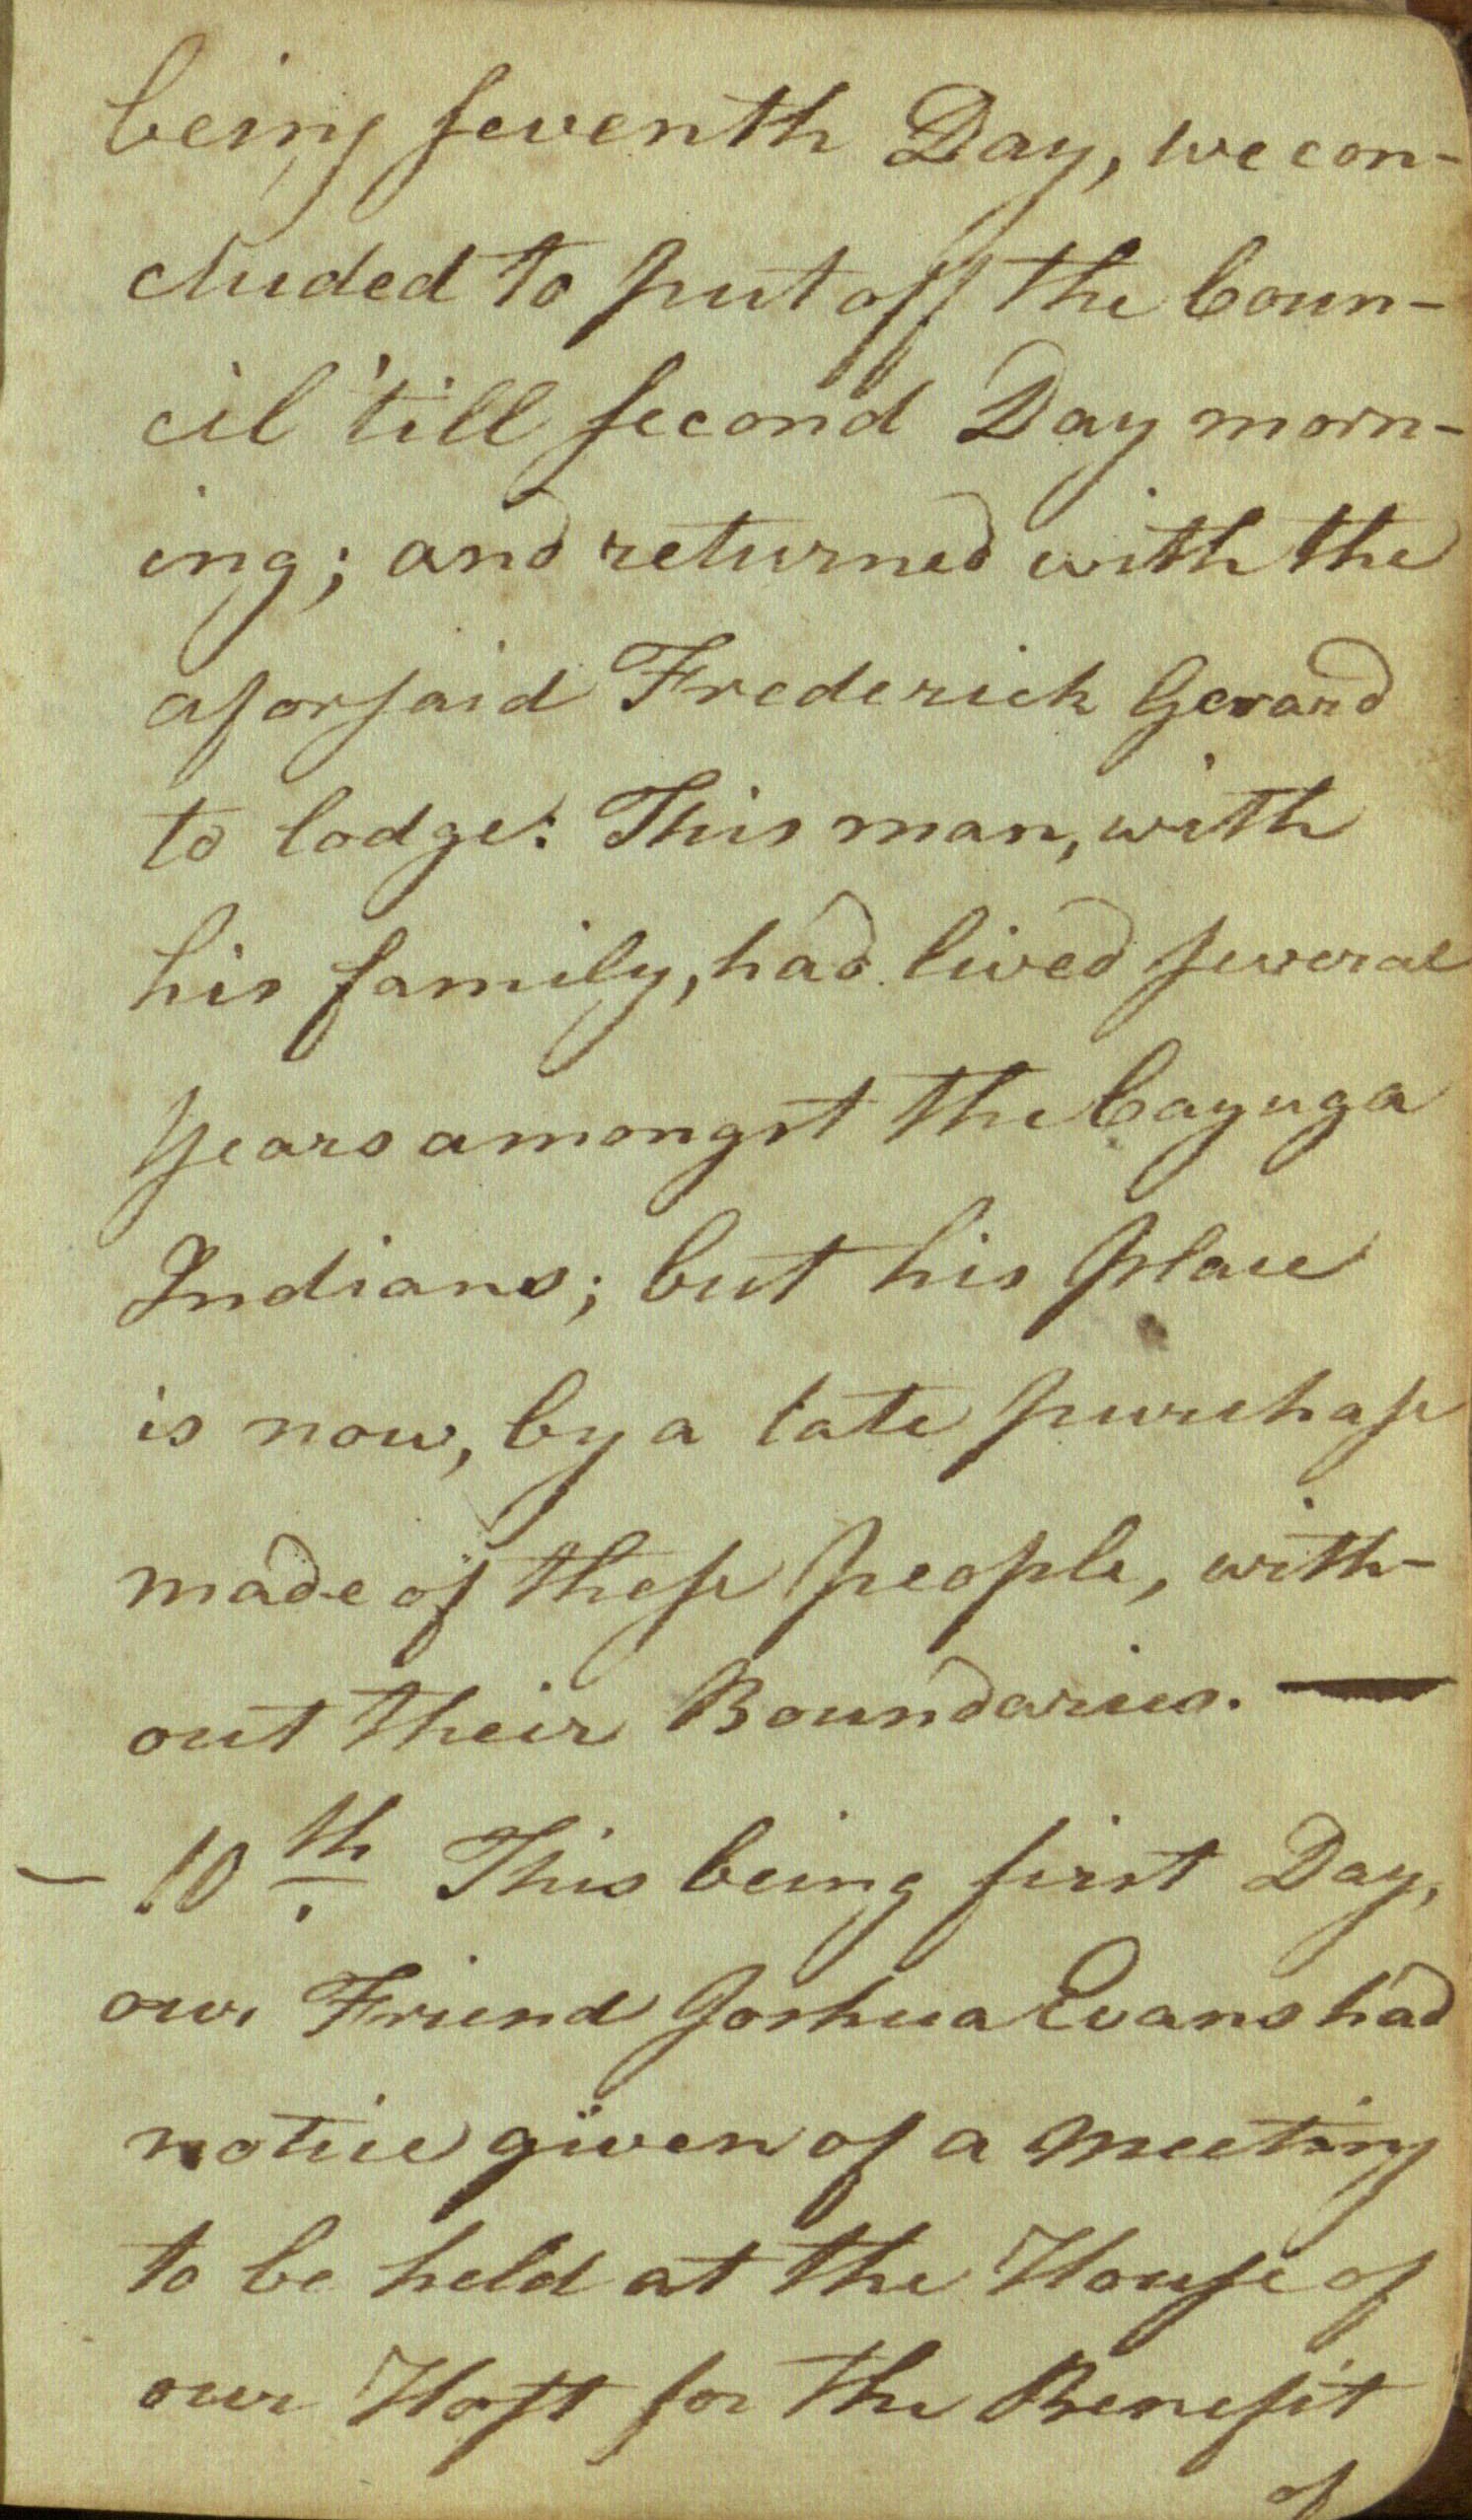 being seventh Day, we con-
cluded to put off the Coun-
cil 'till second Day morn-
ing; and returned with the
aforsaid Frederick Gerard
to lodge: This man, with
his family, had lived several
Years amongst the Cayuga
Indians; but his place
is now, by a late purchase
made of these people, with-
out their Boundaries. —
— 10th. This being first Day,
our Friend Joshua Evans had
notice given of a meeting
to be held at the House of
our Host for the Benefit
of